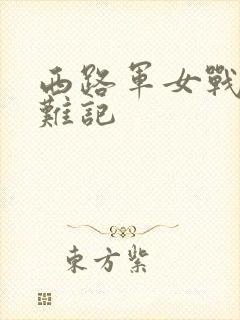 西路军女戰
難記
東方紫